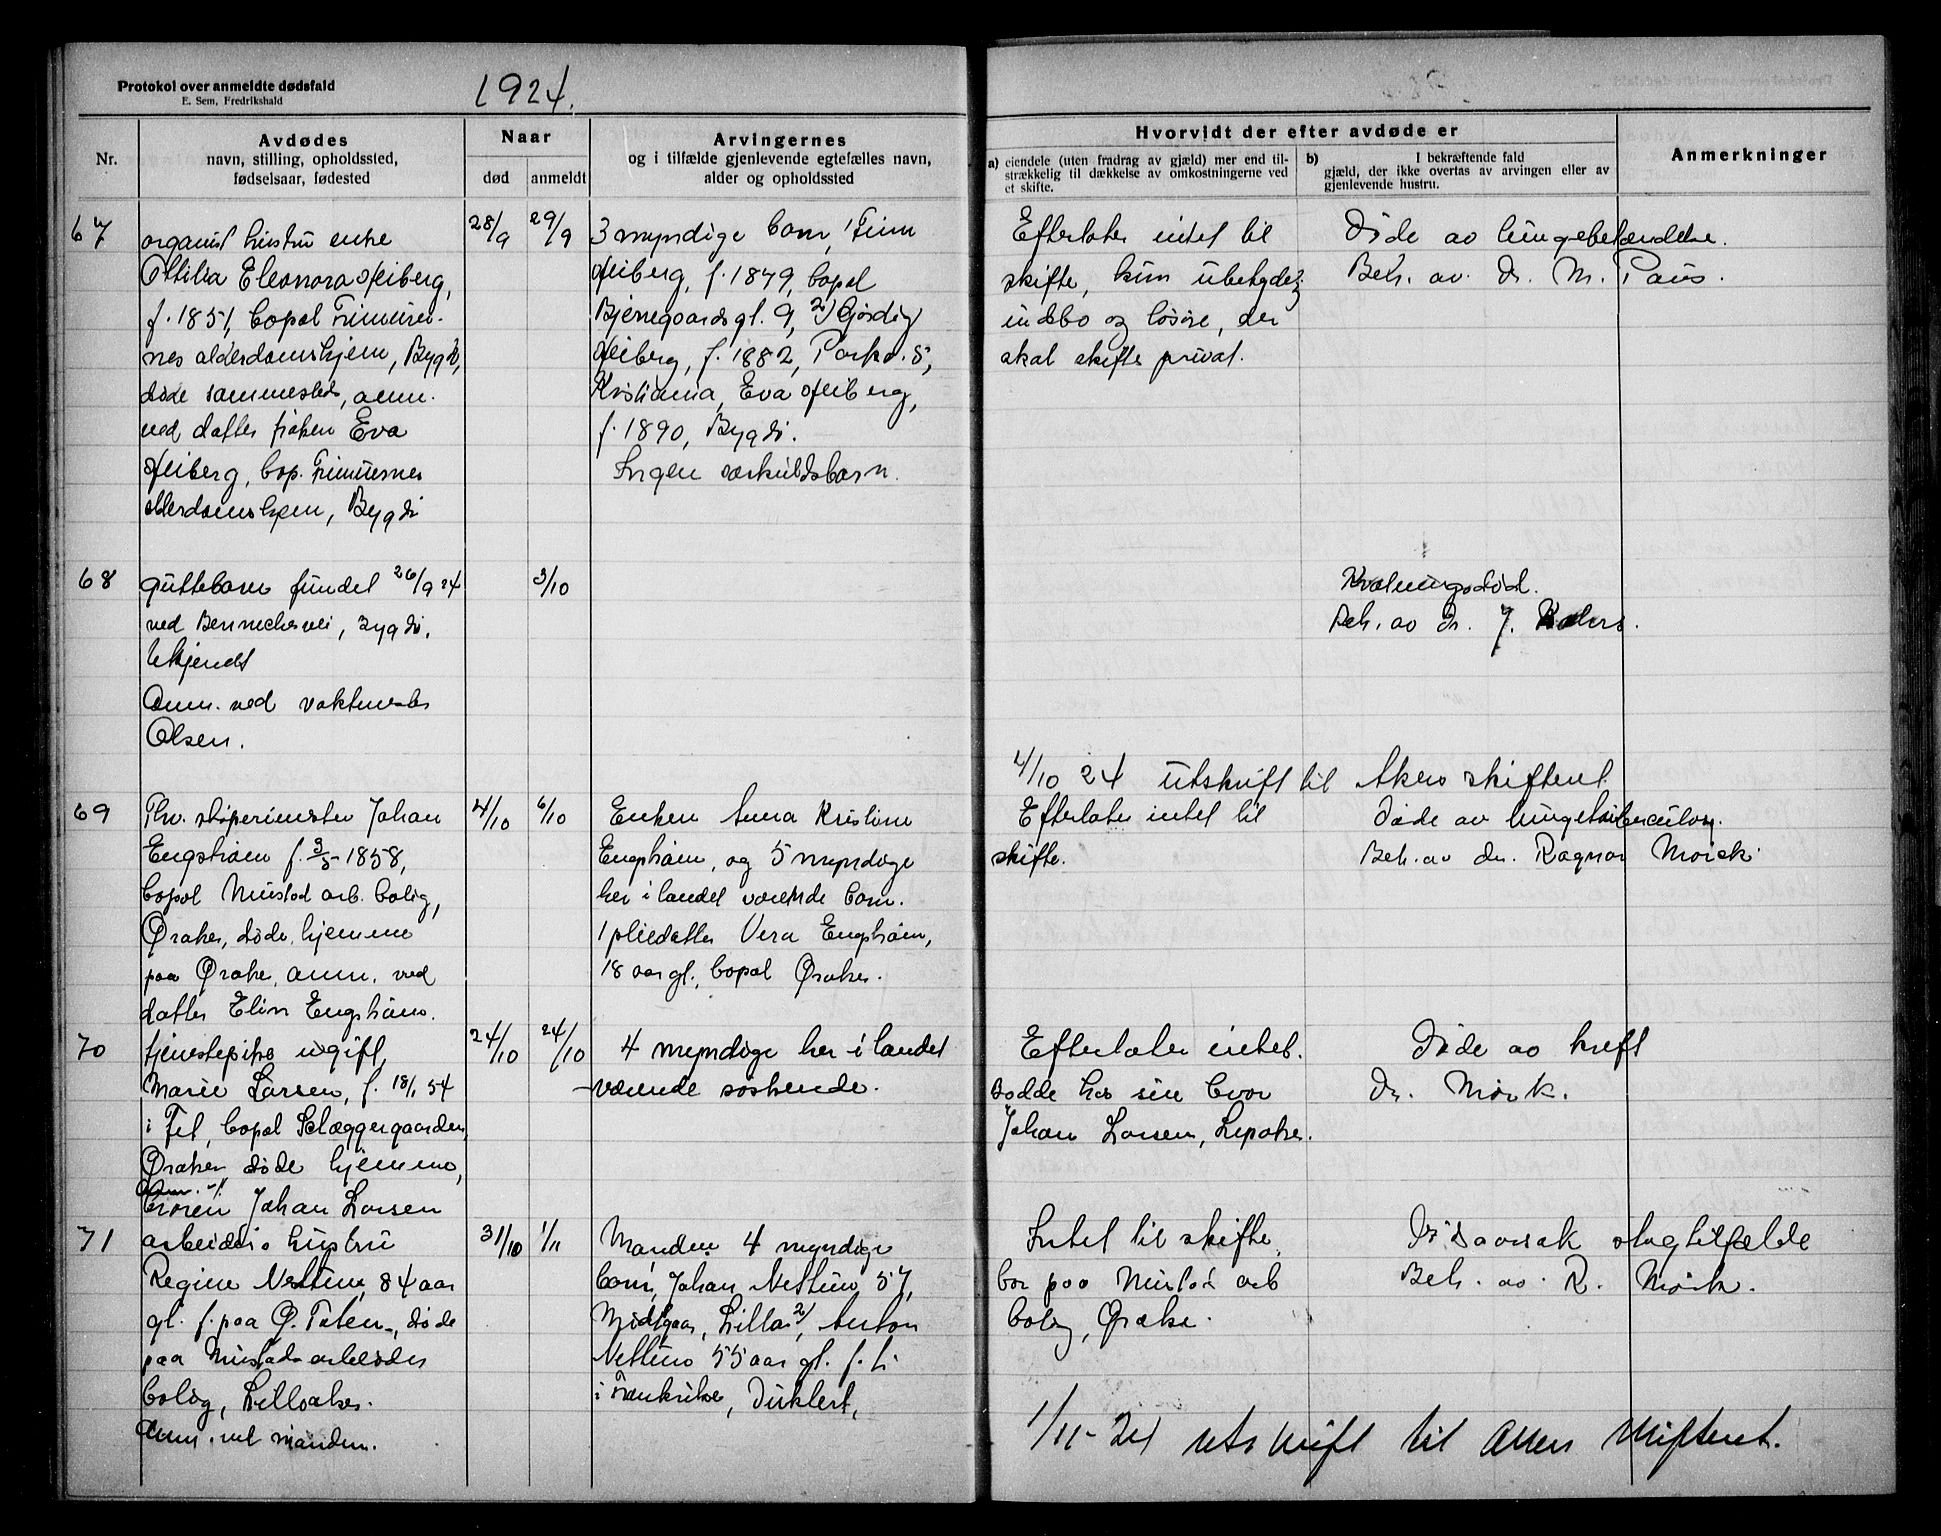 Protokol over anmeldte dødsfald
E. Sem, Fredrikshald
1924.
Nr.
Avdødes
navn, stilling, opholdssted,
fødselsaar, fødested
Naar
død
anmeldt
Arvingernes
og i tilfælde gjenlevende egtefælles navn,
alder og opholdssted
Hvorvidt der efter avdøde er
a) eiendele (uten fradrag av gjæld) mer end til-
strækkelig til dækkelse av omkostningerne ved
et skifte.
b) I bekræftende fald
gjæld, der ikke overtas av arvingen eller av
gjenlevende hustru.
Anmerkninger
67
organist hustru enke
Ottilia Eleonora Heiberg,
f. 1851, bopal
nes alderdomshjem, Bygdö,
döde sammesteds, anm.
ved datter fröken Eva
Heiberg, bop.
alderdomshjem, Bygdö
28/9
29/9
3 myndige barn, Finn
Heiberg, f. 1879, bopal
Bjerregaards gt. 9, 2)
Heiberg, f. 1882, Parkv. 5,
Kristiania, Eva Heiberg,
f. 1890, Bygdö.
Ingen særkuldsbarn.
Efterlater intet til
skifte, kun ubetydelig
indbo og lösöre, der
skal skifte privat.
Döde av lungebetændelse.
Beh. av dr. M. Paus.
68
guttebarn fundet 26/9 24
ved Bennechesvei, Bygdö,
Ukjendt
Anm. ved vaktmester
Olsen.
3/10
Kvælningsdöd.
Beh. av dr. J.
4/10 24 utskrift til Akers skifteret
69
Fhv. stöperimester Johan
Engström f. 3/5 1858,
bopal Mustad arb. bolig,
Øraker, döde hjemme
paa Øraker, anm. ved
datter Elin Engström.
4/10
6/10
Enken Anna Kristine
Engström, og 5 myndige
her i landet værende barn.
1 pleiedatter Vera Engström,
18 aar gl., bopal Øraker.
Efterlater intet til
skifte.
Döde av lungetuberculose.
Beh. av dr. Ragnar Mörk.
70
tjenestepike ugift,
Marie Larsen, f. 18/1 54
i Fet, bopal Sclæggergaarden,
Øraker döde hjemme,
Anm. v/
broren Johan Larsen
24/10
24/10
4 myndige her i landet
værende söskende.
Efterlater intet.
Bodde hos sin bror
Johan Larsen,
Döde av kreft
Dr. Mörk.
71
arbeiders hustru
Regine Nettum, 84 aar
gl. f. paa Ø. Toten, döde
paa Mustads arbeider
bolig, Lilleaker.
Anm. ved manden.
31/10
1/11
Manden 4 myndige
barn, Johan Nettum 57,
2) Anton
Nettum 55 aar gl. f. t.
i Frankrike,
Intet til skifte,
bor paa Mustad arb
bolig, Øraker.
Dödsaarsak slagtilfælde
Beh. av R. Mörk.
1/11-24 utskrift til Akers skifteret.